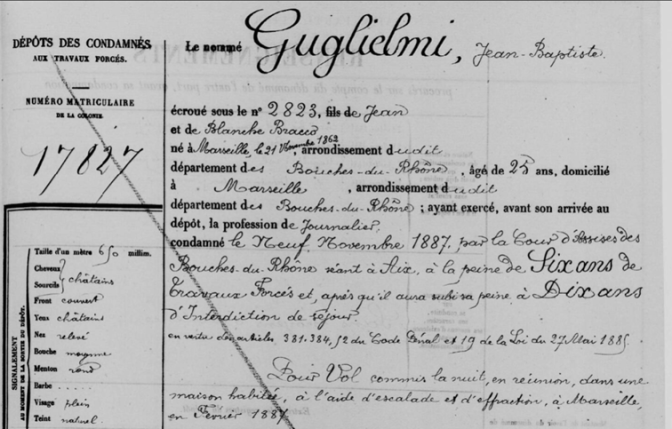 DÉPÔTS DES CONDAMNÉS
AUX TRAVAUX FORCÉS.
NUMÉRO MATRICULAIRE
DE LA COLONIE.
17827
SIGNALEMENT
AU MOMENT DE LA SORTIE DU DÉPÔT.
Taille d'un mètre 650 millim.
Cheveux
Sourcils châtains
Front couvert
Yeux châtains
Nez relevé
Bouche moyenne
Menton rond
Barbe
Visage plein
Teint naturel
Le nommé Guglielmi, Jean-Baptiste.
écroué sous le n° 2823, fils de Jean
et de Blanche Bracco
né à Marseille, le 21 1862, arrondissement dudit
département des Bouches-du-Rhône, âgé de 25 ans, domicilié
à Marseille, arrondissement dudit
département des Bouches-du-Rhône; ayant exercé, avant son arrivée au
dépôt, la profession de Journalier,
condamné le Neuf Novembre 1887, par la Cour d'Assises des
Bouches-du-Rhône séant à Aix, à la peine de Six ans de
Travaux Forcés et, après qu'il aura subi sa peine, à Dix ans
d'Interdiction de séjour.
en vertu des articles 381.384.§2 du Code Pénal et 19 de la Loi du 27 Mai 1885
Pour Vol commis la nuit, en réunion, dans une
maison habitée, à l'aide d'escalade et d'effraction, à Marseille,
en Février 1887